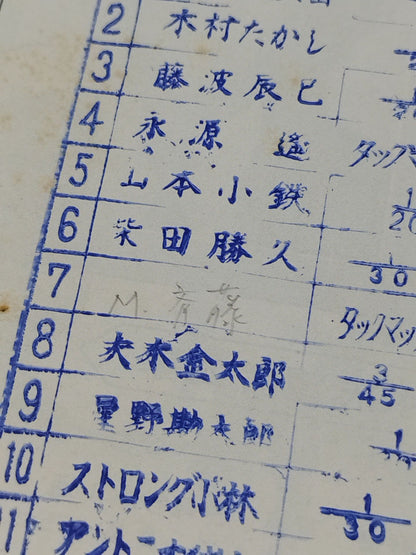 2 木村たかし
3 藤波辰巳 1
4 永源遙 タッグ
5 山本小鉄 1/20
6 柴田勝久 1/30
7 M.斎藤 タッグマッ
8 大木金太郎 3/45
9 星野勘太郎 1
10 ストロング小林 1/30
11 アントニオ